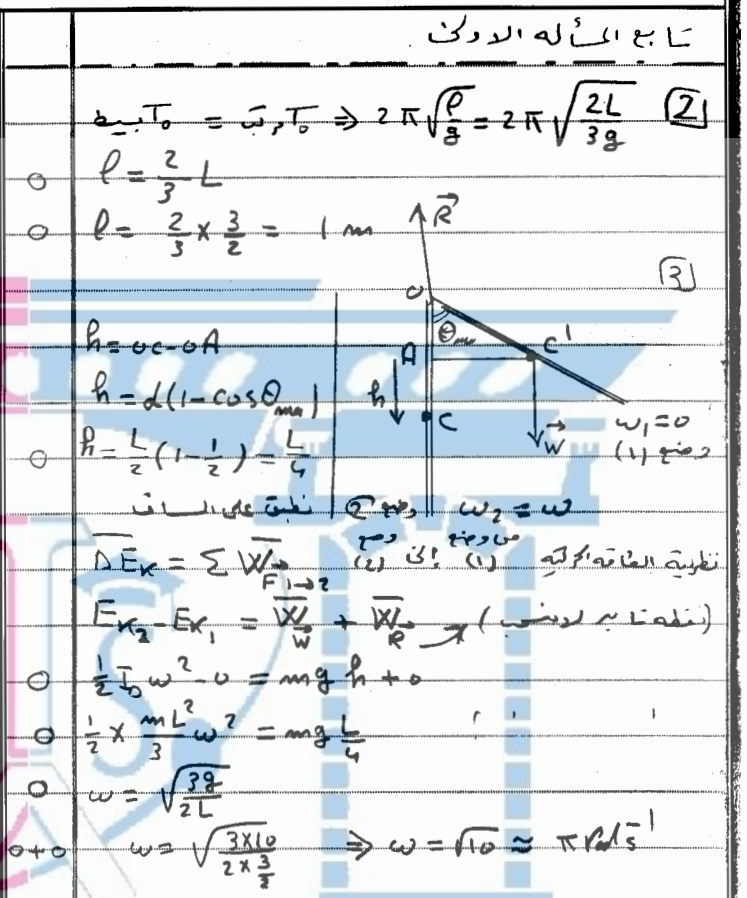 تابع المسألة الاولى
[2] T₀ بسيط = T₀ مركب ⇒ 2π√(ℓ/g) = 2π√(2L/3g)
ℓ = 2/3 L
ℓ = 2/3 × 3/2 = 1 m
[3]
R⃗
O
θmax
A
C'
h
C
W⃗
ω₁ = 0
وضع (1)
h = oc - oA
h = d(1 - cosθmax)
h = L/2 (1 - 1/2) = L/4
وضع 2 ω₂ = ω
نطبق على الساق
نظرية الطاقة الحركية من وضع (1) إلى وضع (2)
ΔE̅ₖ = Σ W̅ F⃗ 1→2
Eₖ₂ - Eₖ₁ = W̅ W⃗ + W̅ R⃗ (نقطة تأثير لا تنتقل)
1/2 I₀ ω² - 0 = mgh + 0
1/2 × mL²/3 ω² = mg L/4
ω = √(3g/2L)
ω = √(3×10 / 2×3/2) ⇒ ω = √10 ≈ π rad s⁻¹